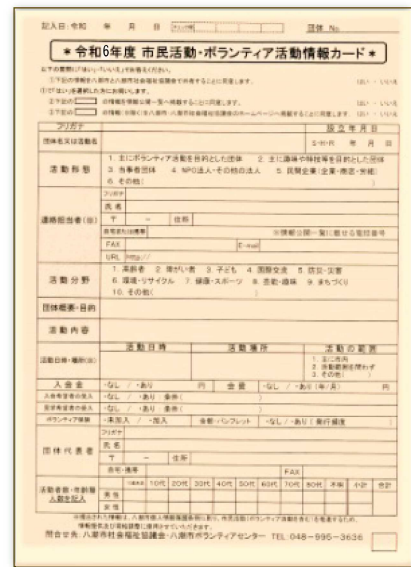 記入日:令和 年 月 日 団体 No.
*令和6年度 市民活動・ボランティア活動情報カード*
以下の質問に「はい」・「いいえ」でお答えください。
①下記の情報を八潮市と八潮市社会福祉協議会で共有することに同意します。 はい ・ いいえ
①で「はい」を選択した方にお伺いします。
②下記の の情報を情報公開一覧へ掲載することに同意します。 はい ・ いいえ
③下記の の情報(※除く)を八潮市・八潮市社会福祉協議会のホームページへ掲載することに同意します。 はい ・ いいえ
フリガナ 設立年月日
団体名又は活動名 S・H・R 年 月 日
活動形態 1. 主にボランティア活動を目的とした団体 2. 主に趣味や特技等を目的とした団体
3. 当事者団体 4. NPO法人・その他の法人 5. 民間企業(企業・商店・労組)
6. その他( )
連絡担当者(※) フリガナ
氏名
〒 - 住所
自宅または携帯 ※情報公開一覧に載せる電話番号
FAX E-mail
URL http://
活動分野 1. 高齢者 2. 障がい者 3. 子ども 4. 国際交流 5. 防災・災害
6. 環境・リサイクル 7. 健康・スポーツ 8. 芸能・趣味 9. まちづくり
10. その他( )
団体概要・目的
活動内容
活動日時 活動場所 活動の範囲
活動日時・場所(※) 1. 主に市内
2. 活動範囲を問わず
3. その他( )
入会金 ・なし / ・あり 円 会費 ・なし / ・あり(年/月) 円
入会希望者の受入 ・なし / ・あり:条件( )
見学希望者の受入 ・なし / ・あり:条件( )
ボランティア保険 ・未加入 / ・加入 会報・パンフレット ・なし / ・あり(発行頻度 )
団体代表者 フリガナ
氏名
〒 - 住所
自宅・携帯 FAX
活動者数・年齢層 10代 20代 30代 40代 50代 60代 70代 80代 不明 小計 合計
人数を記入 男性
女性
問合せ先:八潮市社会福祉協議会・八潮市ボランティアセンター TEL 048-995-3636